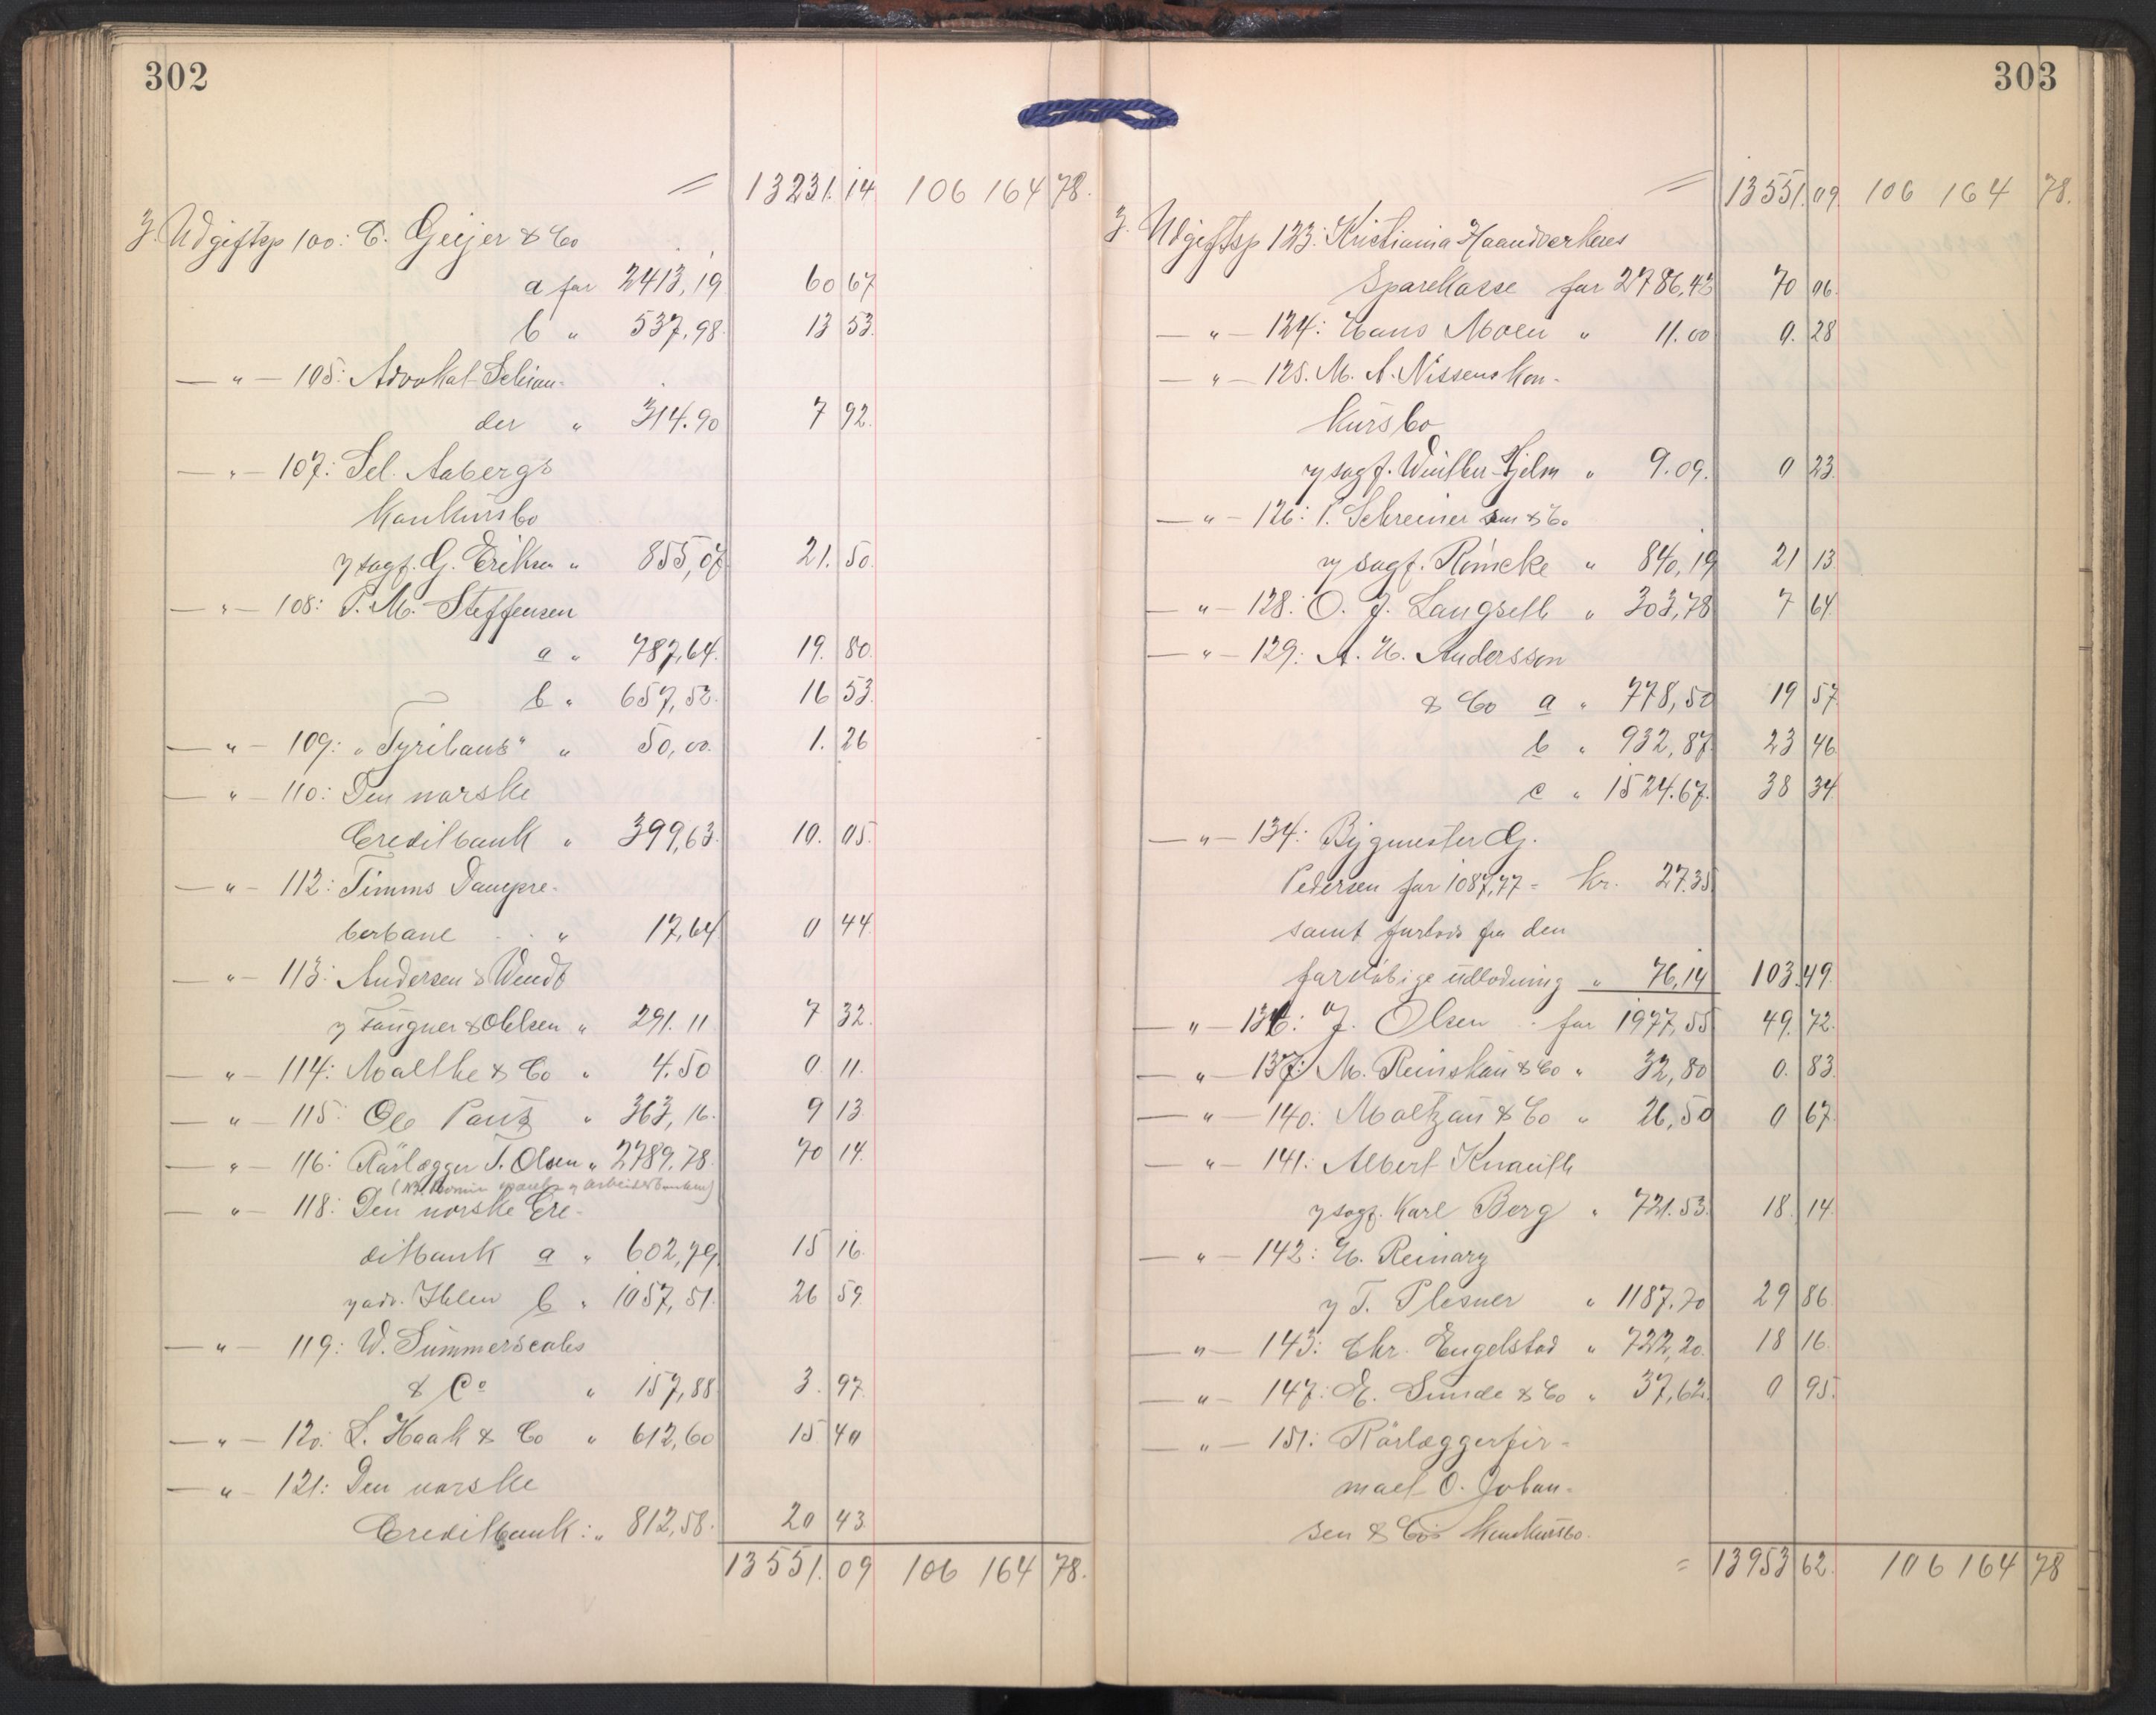 302
= 13231.14 106 164 78.
Udgiftsp 100: C. Geijer & Co
a for 2413,19 60 67
b " 537,98. 13 53.
— " — 105: Advokat Schian-
der " 314.90 7 92.
— " — 107: Sel. Aabergs
Konkursbo
v/ sagf. G. Eriksen " 855,07 21. 50.
— " — 108: P. M. Steffensen
a " 787,64. 19. 80.
b " 657,53. 16 53.
— " — 109: "Tyrihans" " 50,00. 1. 26
— " — 110: Den norske
Creditbank " 399,63. 10. 05.
— " — 112: Timms Dampre-
berbane " 17,64 0 44.
— " — 113: Andersen & Wendt
v/ Tangner & Ohlsen " 291.11 7 32.
— " — 114: Malthe & Co " 4.50 0 11.
— " — 115: Ole Pauz " 363,16. 9 13
— " — 116: Rörlægger T. Olsen " 2789,78. 70 14.
— " — 118: Den norske Cre-
ditbank a " 602,79. 15 16.
v/ adv. Ihlen b " 1057,51. 26 59.
— " — 119: W. Summerscales
& Co " 157,88 3. 97.
— " — 120: L. Haak & Co " 612,60 15 40
— " — 121: Den norske
Creditbank: " 812,58. 20 43.
13551.09 106 164 78.
303
= 13551.09 106 164 78.
Udgiftsp 123: Kristiania Haandverkeres
Sparekasse for 2786,43 70 06.
— " — 124: Hans Moen " 11.00 0. 28
— " — 125. M. A. Nissens Kon-
kursbo
v/ sagf. Winther Hjelm " 9.09. 0 23.
— " — 126: P. Schreiner sen & Co
v/ sagf. Römcke " 840,19 21 13.
— " — 128: O. J. Langseth " 303,78 7 64.
— " — 129: A. H. Andersson
& Co a " 778,50 19 57.
b " 932,87. 23 46.
c " 1524.67. 38 34
— " — 134: Bygmester G.
Pedersen for 1087,77 = Kr. 27.35
samt forlods fra den
foreløbige udlodning " 76,14 103.49.
— " — 136: J. Olsen for 1977,55 49. 72.
— " — 137: M. Reinskau & Co " 32,80 0. 83.
— " — 140. Moltzau & Co " 26,50 0 67.
— " — 141: Albert Knauth
v/ sagf. Karl Berg " 721.53. 18. 14.
— " — 142: H. Reinarz
v/ T. Plesner " 1187.70 29 86
— " — 143: Chr. Engelstad " 722,20. 18 16.
— " — 147: E. Sunde & Co " 37,62. 0 95.
— " — 151: Rörlæggerfir-
maet O. Johan-
sen & Co's Konkursbo.
= 13953 62. 106 164 78